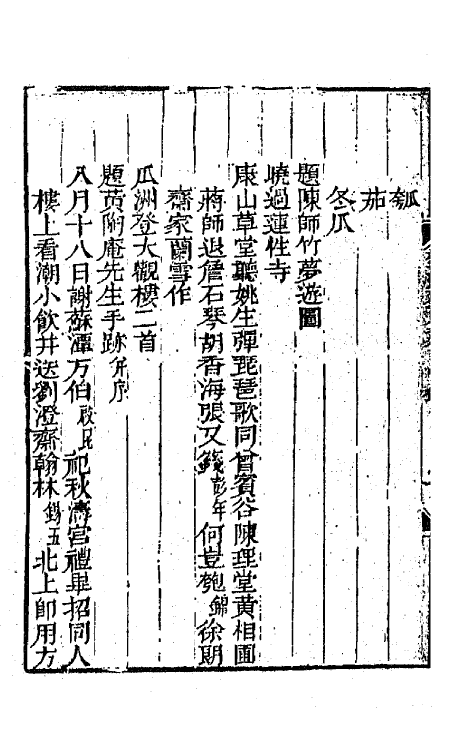 瓠
茄
冬瓜
題陳師竹夢遊圖
曉過蓮性寺
康山草堂聽姚生彈琵琶歌同曾賓谷陳理堂黃相圃
蔣師退詹石琴胡香海張又籛彭年何豈匏錦徐朗
齋家蘭雪作
瓜洲登大觀樓二首
題黃陶庵先生手跡并序
八月十八日謝蘇潭方伯啟昆祀秋濤宮禮畢招同人
樓上看潮小飲并送劉澄齋翰林錫五北上即用方